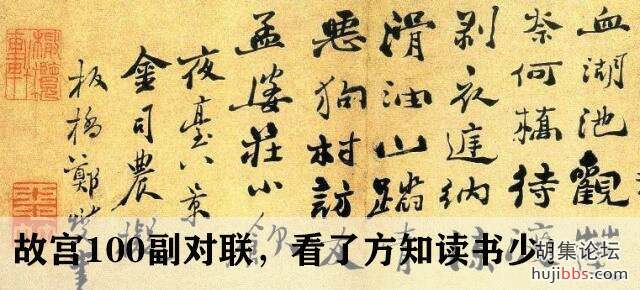 血湖池觀
奈何橋待渡
剥衣廷納凉
滑油山踏青
惡狗村訪友
孟婆莊小飲
夜臺八景
金司農擬
板橋鄭燮書
故宫100副对联，看了方知读书少
胡集论坛
hujibbs.com